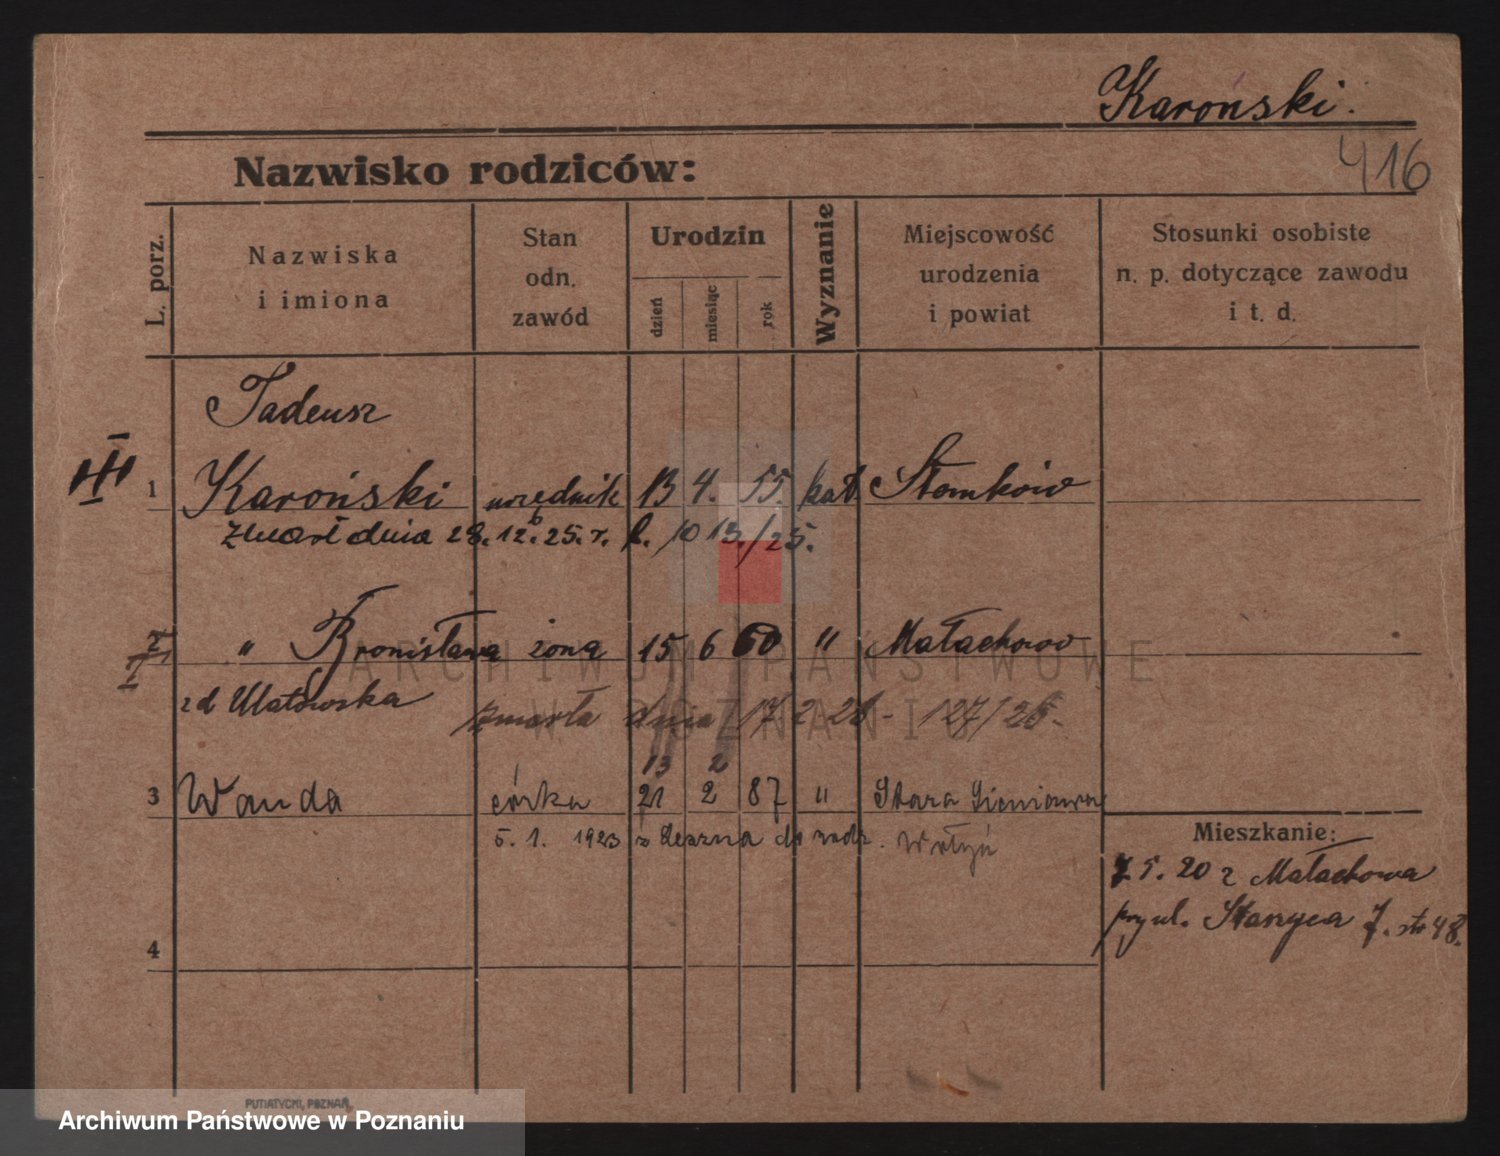 Karoński.
416
Nazwisko rodziców:
L. porz.
Nazwiska
i imiona
Stan
odn.
zawód
Urodzin
dzień
miesiąc
rok
Wyznanie
Miejscowość
urodzenia
i powiat
Stosunki osobiste
n. p. dotyczące zawodu
i t. d.
Tadeusz
1 Karoński urzędnik 13 4. 55. kat. Słomków
zmarł dnia 28. 12. 25. r. l. 1013./25.
2 " Bronisława żona 15 6 60 " Małachowo
z d Ulatowska
zmarła dnia 17 2 26 - 127/26-
13 2
3 Wanda córka 21 2 87 " Stara Sieniawa
5. 1. 1923 z Leszna do rodz. Wołyń
Mieszkanie:
7 5. 20 z Małachowa
przy ul. Staszyca 7. str 48.
4
ARCHIWUM PAŃSTWOWE
W POZNANIU
PUTIATYCKI, POZNAŃ.
Archiwum Państwowe w Poznaniu